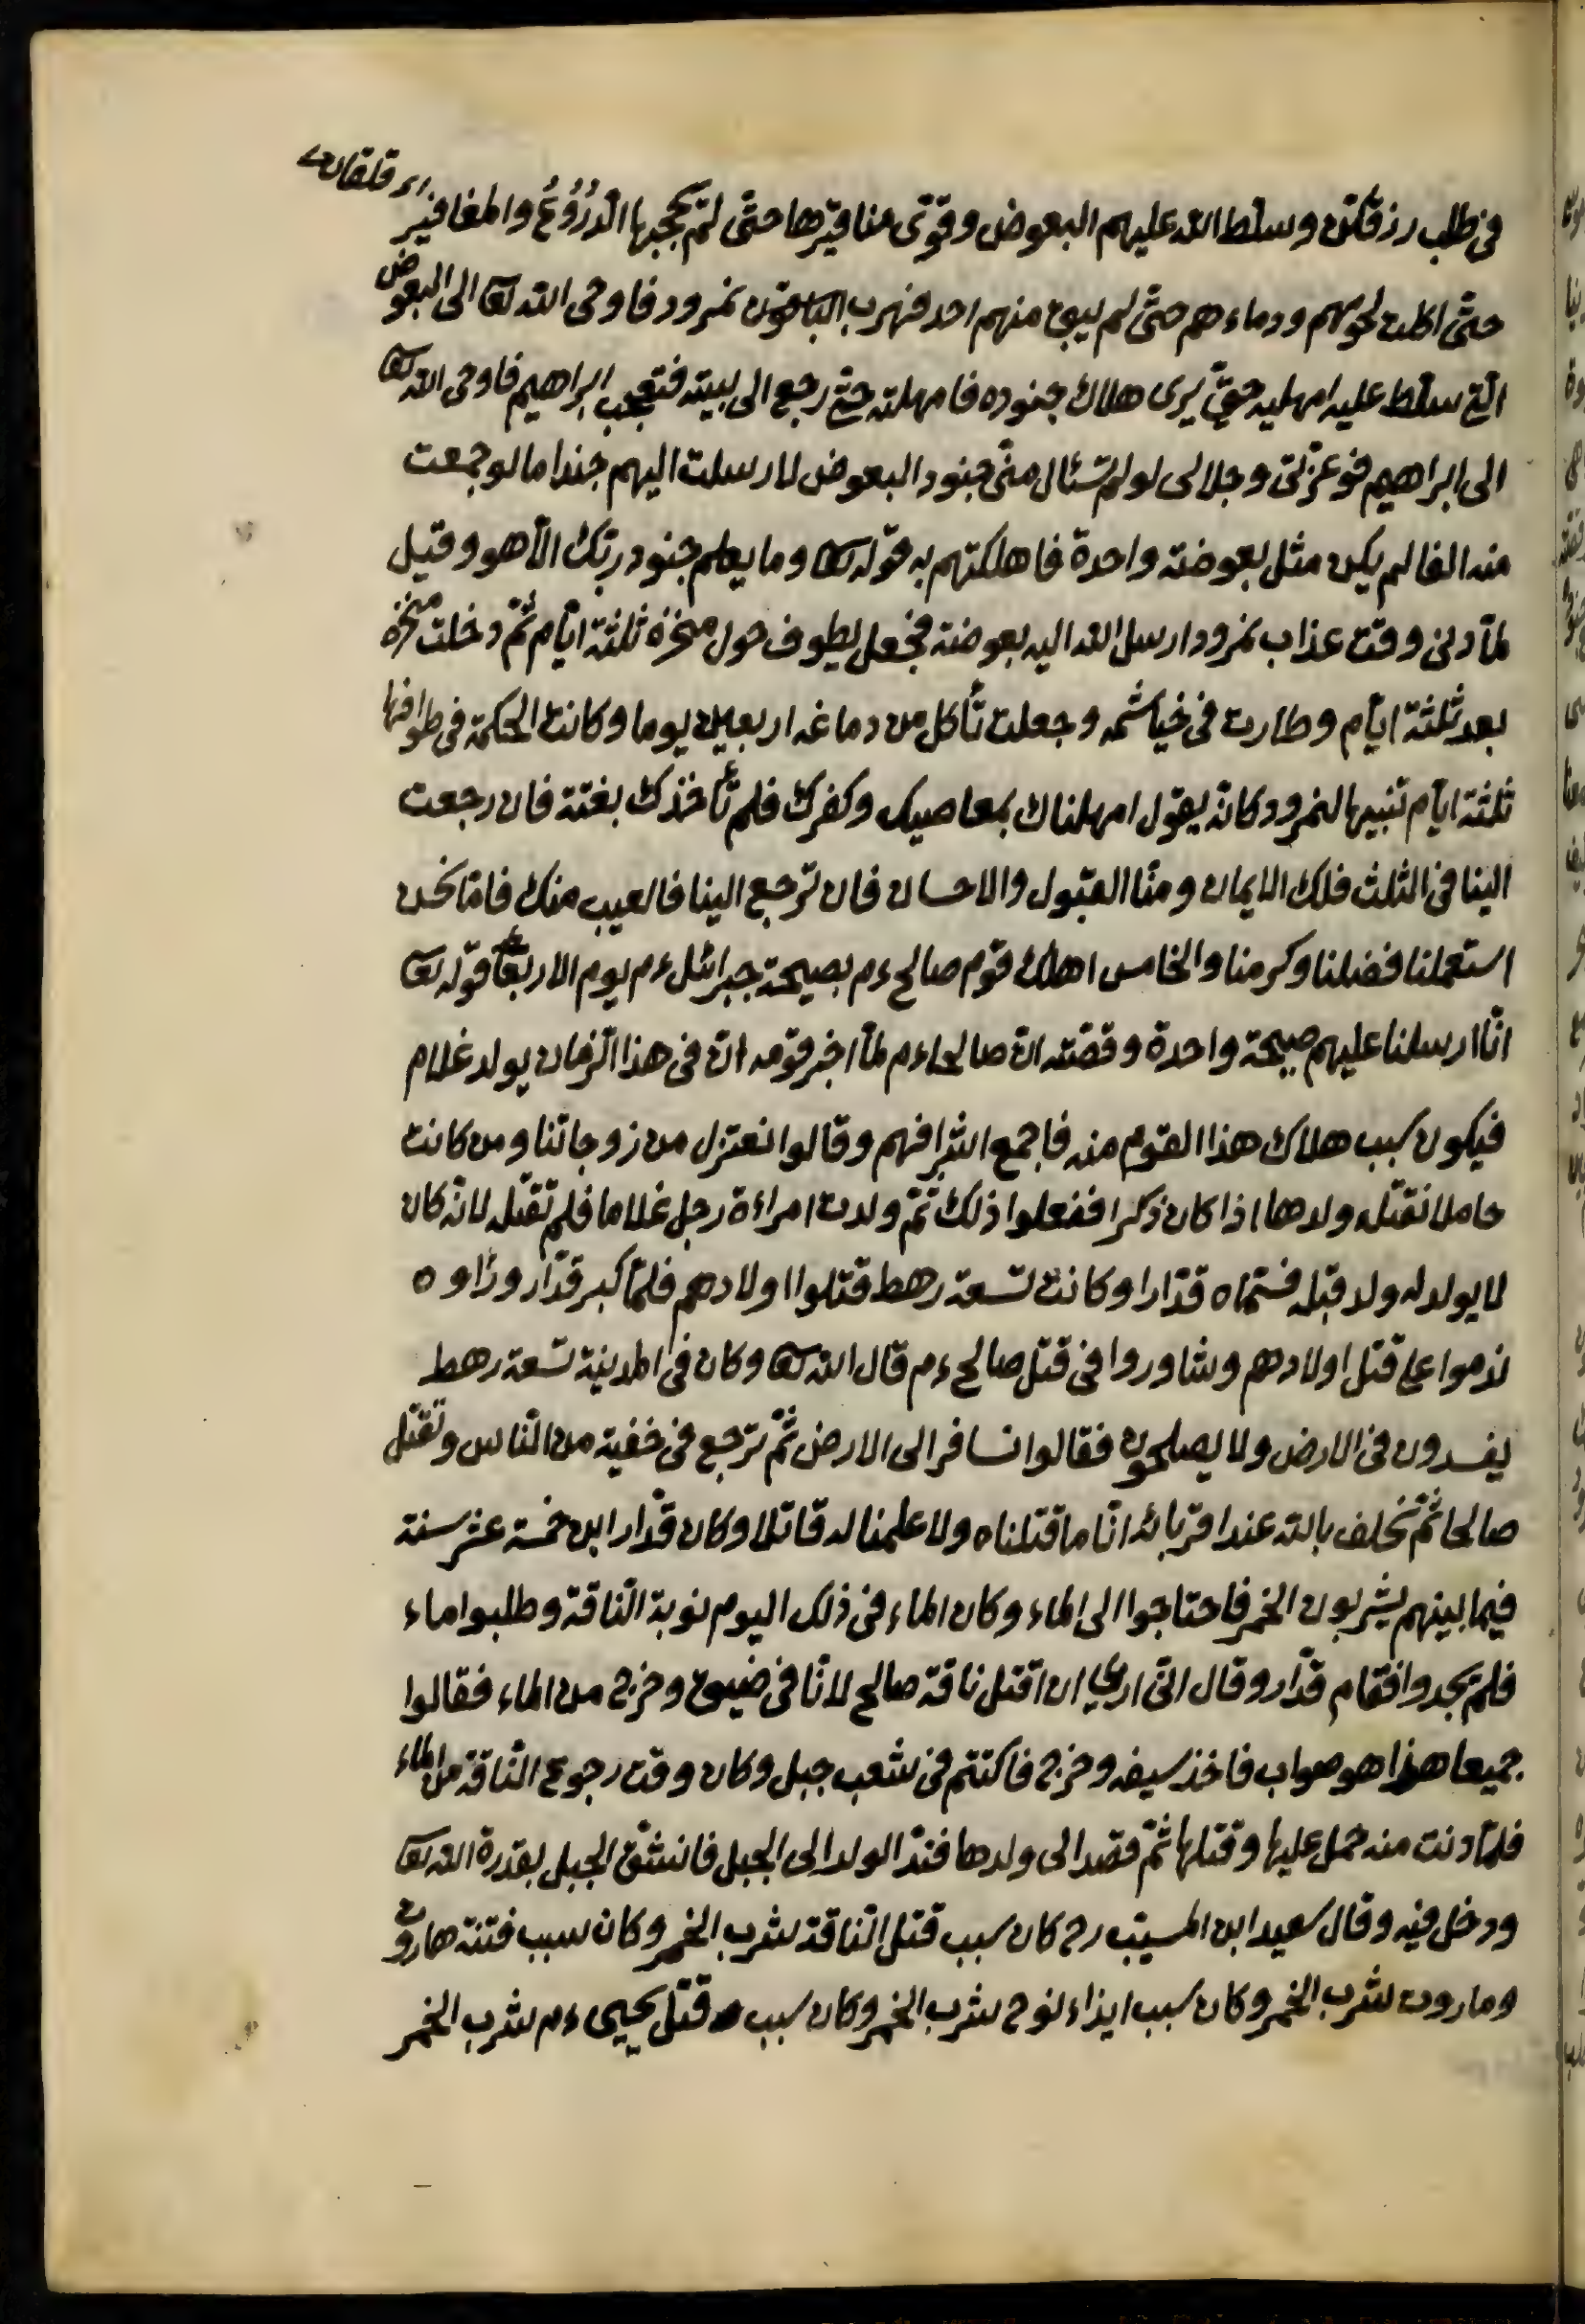 اى قلقان
فى طلب رزقكن وسلط الله عليهم البعوض وقوّى مناقيرها حتّى لم يحجبها الدُّرُوْعُ والمغافير
حتّى اكلت لحومهم ودماءهم حتّى لم يبق منهم احد فهرب الباقون نمرود فاوحى الله تعا الى البعوض
التى سلط عليه امهليه حتّى يرى هلاك جنوده فامهلته حتّى رجع الى بيته فتعجب ابراهيم فاوحى الله تعا
الى ابراهيم فوعزّتى وجلالى لو لم تسئال منّى جنود البعوض لارسلت اليهم جندا ما لو جمعت
منه الفا لم يكن مثل بعوضة واحدة فاهلكتهم به قوله تعا وما يعلم جنود ربّك الّا هو وقيل
لمّا دنى وقت عذاب نمرود ارسل الله اليه بعوضة فجعل يطوف حول منخزه ثلثة ايّام ثمّ دخلت منخزه
بعد ثلثة ايّام وطارت فى خياشمه وجعلت تأكل من دماغه اربعين يوما وكانت الحكمة فى طوافها
ثلثة ايّام تنبيها لنمرود كانّه يقول امهلناك بمعاصيك وكفرك فلم نأخذك بغتة فان رجعت
الينا فى الثلث فلك الايمان ومنّا القبول والاحسان فان ترجع الينا فالعيب منك فامّا نحن
استعملنا فضلنا وكرمنا والخامس اهلك قوم صالح ءم بصيحة جبرائل ءم يوم الاربعآء قوله تعا
انّا ارسلنا عليهم صيحة واحدة وقصّته انّ صالحا ءم لمّا اخبر قومه انّ فى هذا الزّمان يولد غلام
فيكون سبب هلاك هذا القوم منه فاجمع اشرافهم وقالوا نعتزل من زوجاتنا ومن كانت
حاملا نقتل ولدها اذا كان ذكرا ففعلوا ذلك ثمّ ولدت امراءة رجل غلاما فلم تقتله لانّه كان
لا يولد له ولد قبله فسمّاه قدّارا وكانت تسعة رهط قتلوا اولادهم فلمّا كبر قدّار وراوه
ندموا على قتل اولادهم وشاوروا فى قتل صالح ءم قال الله تعا وكان فى المدينة تسعة رهط
يفسدون فى الارض ولا يصلحون فقالوا نسافر الى الارض ثمّ نرجع فى خفية من النّاس ونقتل
صالحا ثمّ نحلف بالله عند اقربائه انّا ما قتلناه ولا علمنا له قاتلا وكان قدّار ابن خمسة عشر سنة
فيما بينهم يشربون الخمر فاحتاجوا الى الماء وكان الماء فى ذلك اليوم نوبة النّاقة وطلبوا ماء
فلم يجدوا فقام قدّار وقال انّى اريد ان اقتل ناقة صالح لانّا فى ضيق وحزج من الماء فقالوا
جميعا هذا هو صواب فاخذ سيفه وخرج فاكتتم فى شعب جبل وكان وقت رجوع النّاقة من الماء
فلمّا دنت منه حمل عليها وقتلها ثمّ قصد الى ولدها فندّ الولد الى الجبل فانشقّ الجبل بقدرة الله تعا
ودخل فيه وقال سعيد ابن المسيّب رح كان سبب قتل النّاقة شرب الخمر وكان سبب فتنة هاروت
وماروت شرب الخمر وكان سبب ايذاء نوح شرب الخمر وكان سبب قتل يحيى ءم شرب الخمر